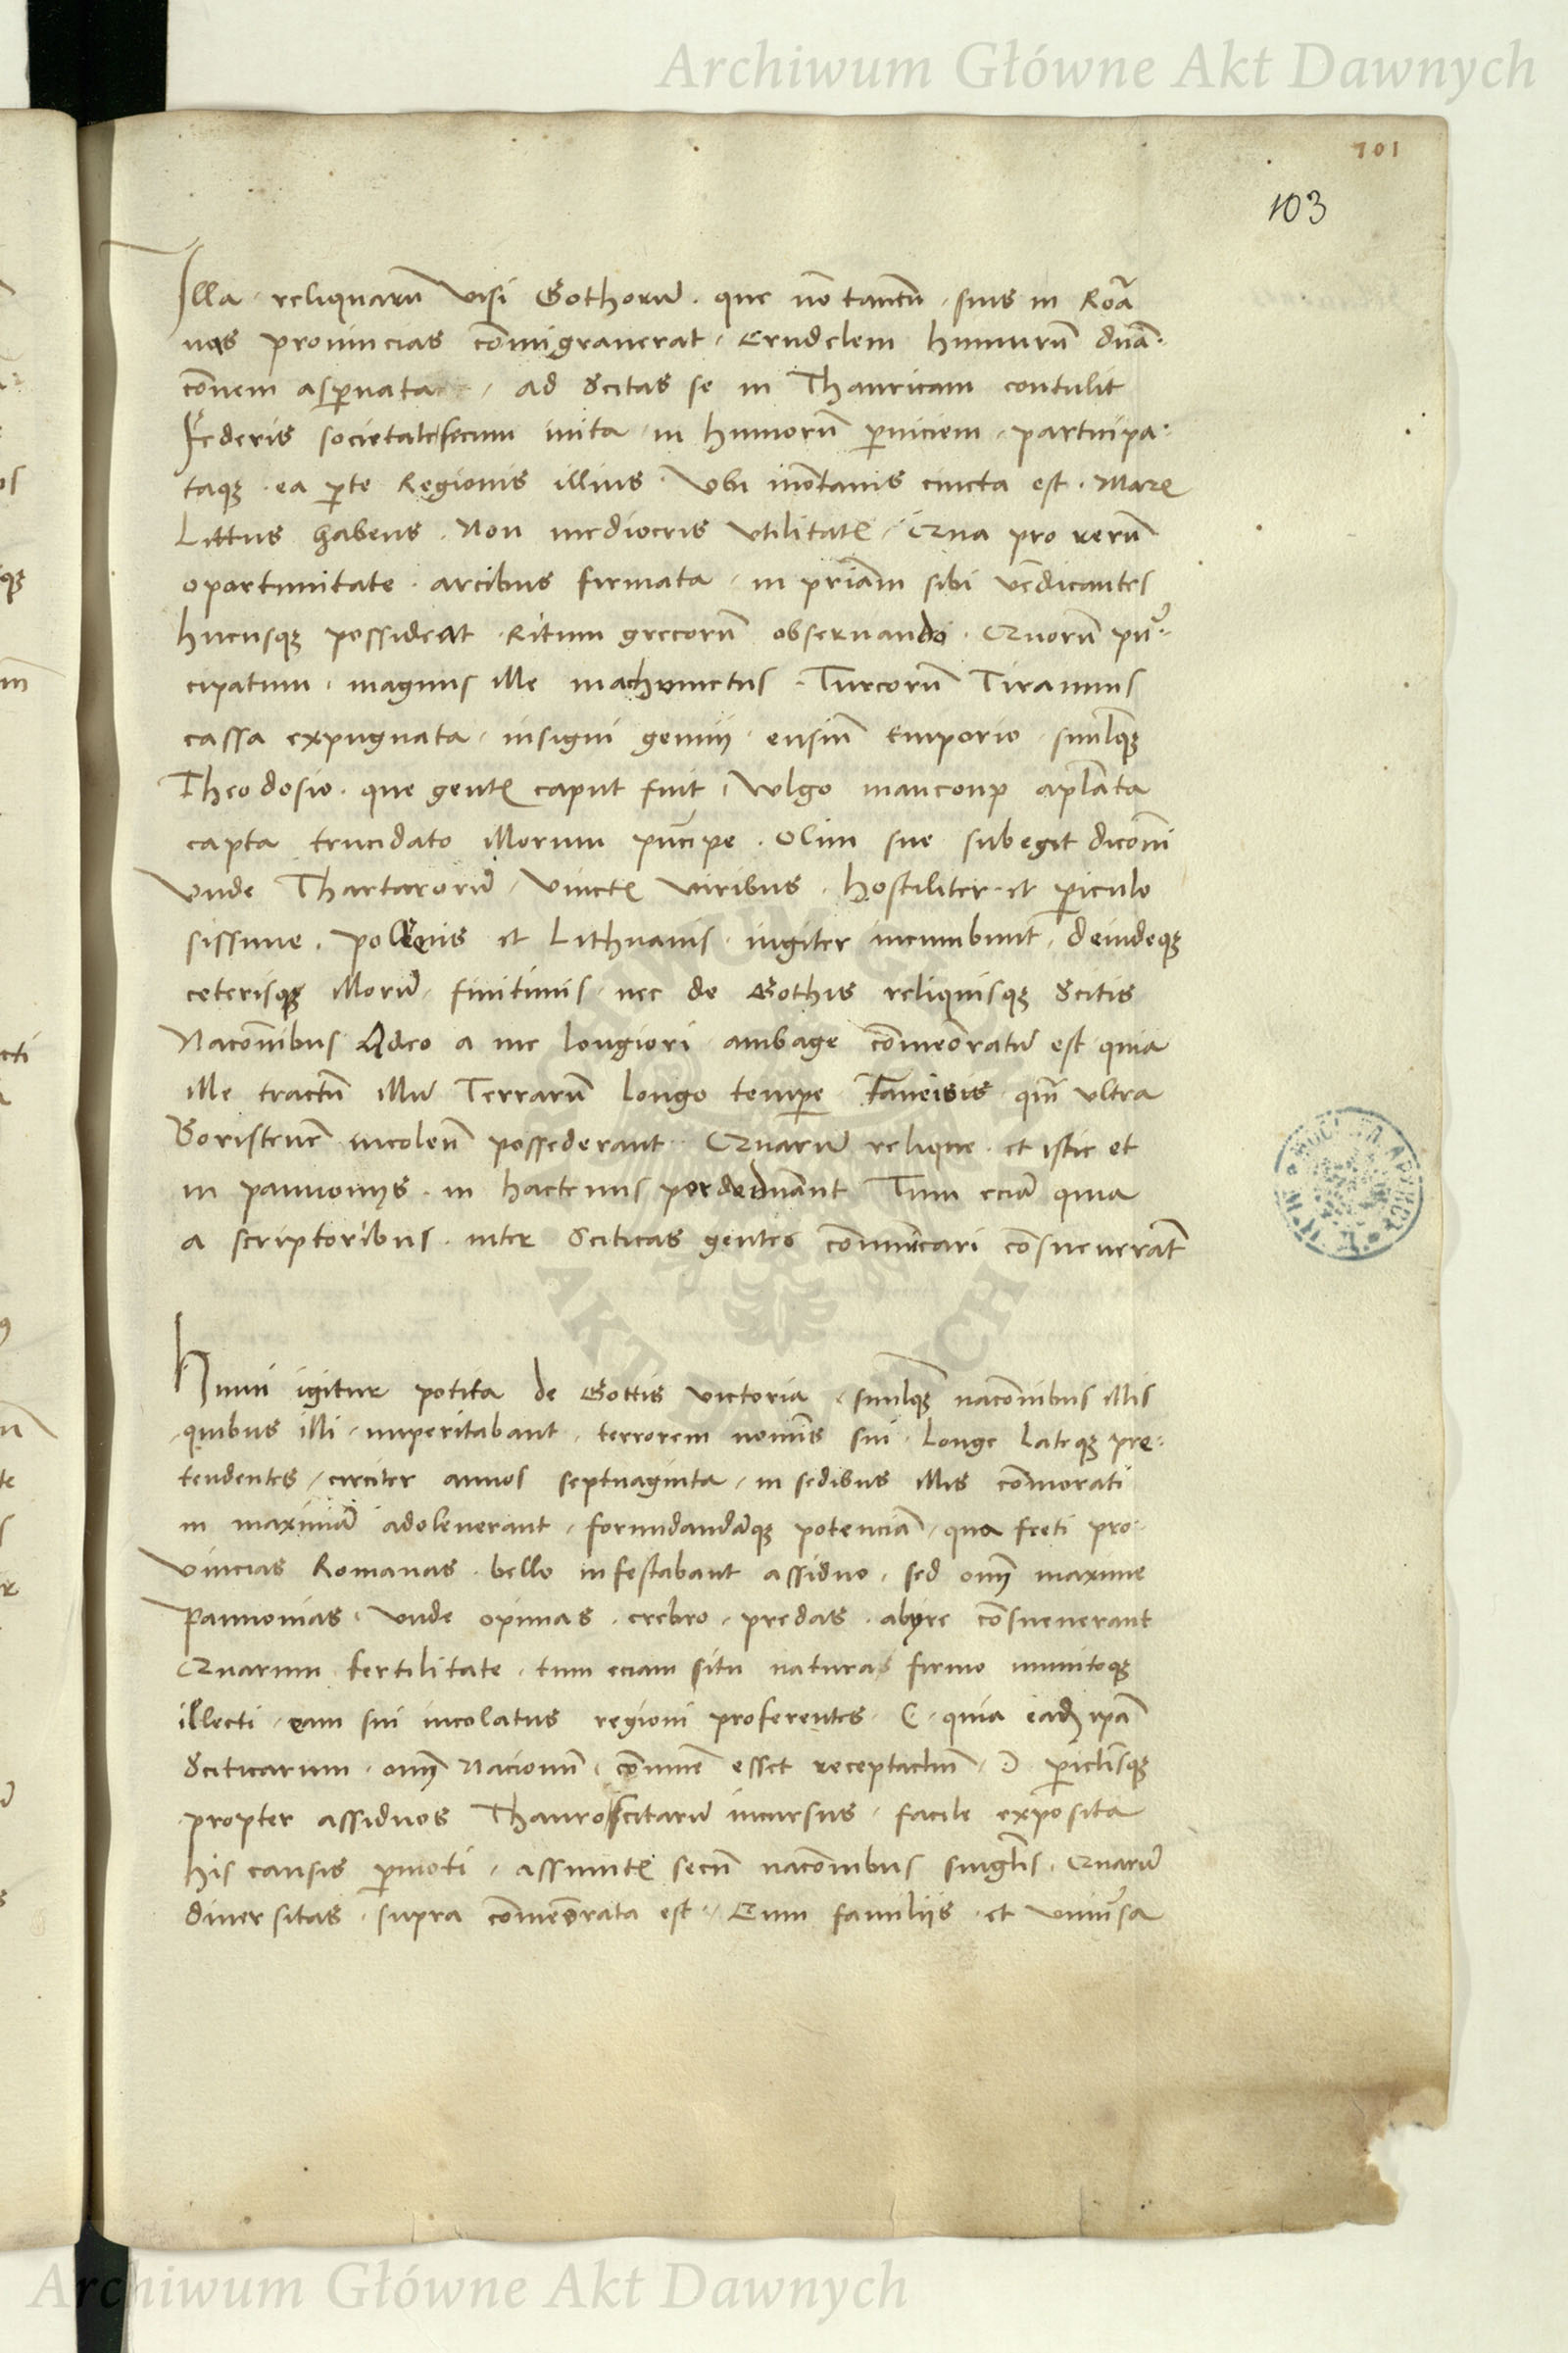 Archiwum Główne Akt Dawnych
101
103
Illa reliquarũ Visi Gothorũ. que nõ tantũ suis in Romã
nas prouincias cõmigrauerat, Crudelem hunnurũ dnã.
cõnem asp̱nata, ad Scitas se in Thauricam contulit
Federis societate secum inita in hunnorũ p̱niciem, participa.
taqꝫ ea p̱te Regionis illius Vbi mõtanis cincta est. Mare
Littus habens. Non mediocris vtilitatꝭ. Qua pro rerũ
oportunitate. arcibus firmata, in priãm sibi vẽdicantes
hucusqꝫ possident. Ritum grecorũ obseruando. Quorũ prin.
cipatum. magnus ille machometus. Turcorũ Tirannus
caffa expugnata, insigni genuij ensiũ Emporio, similqꝫ
Theodosio. que gentꝭ caput fuit, Vulgo mancoup aplãta
capta trucidato illorum principe. Olim sue subegit diconi
Vnde Thartarorũ, vinctꝭ viribus. hostiliter. et p̱iculo
sissime. Polonis et Lithuanis. iugiter incumbunt, deindeqꝫ
ceterisqꝫ illorũ, finitimis, nec de Gothis reliquisqꝫ Scitis
Naconibus Adeo a me longiori ambage cõmeõratũ est quia
ille tractũ illũ Terrarũ longo temp̱e qm̃ vltra
Boristenẽ incoleũ possederant. Quarũ relique et istic et
in pannonijs. in hactenus Tum eciã quia
a scriptoribus. inter Sciticas gentes cõmũicari cõsueuerãt
Hunni igitur potita de Gottis victoria, similqꝫ naconibus illis
quibus illi imperitabant, terrorem nomĩs sui longe lateqꝫ pre.
tendentes, circiter annos septuaginta, in sedibus illis cõmorati
in maximã adoleuerant, formidandãqꝫ potenciã, qua freti pro.
Vincias Romanas. bello infestabant assiduo, sed om̃ maxime
Pannonias. Vnde opimas. crebro, predas. abire cõsueuerant
Quarum fertilitate, tum eciam situ natura firmo munitoqꝫ
illecti, eam sui incolatus regioni proferentes. C. quia eadꝫ ipã
Sciticarum. om̃ Nacionũ, cõmune esset receptaclũ. Ɔ p̱iclisqꝫ
propter assiduos Thauroscitarũ incursus, facile exposita
his causis p̱moti, assumtꝭ secũ naconibus singlis. Quarũ
diuersitas. supra cõmeõrata est. Cum familiis et vniũsa
Archiwum Główne Akt Dawnych